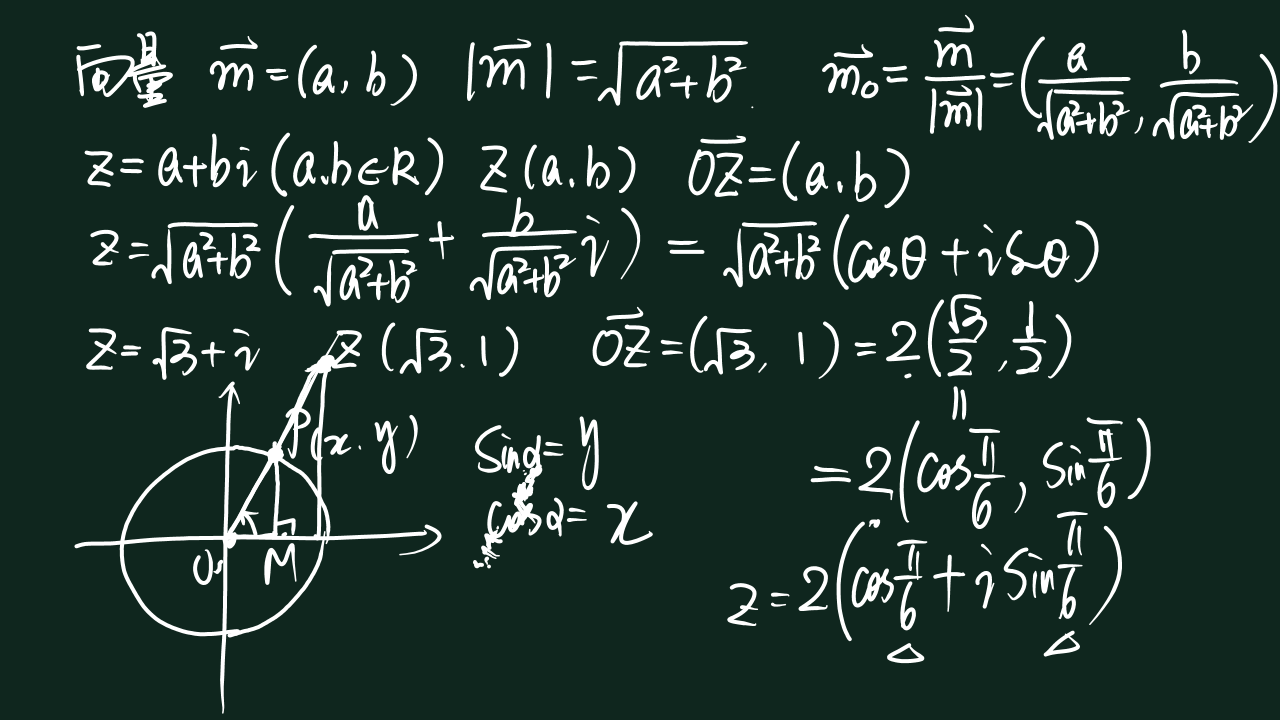 向量 m⃗=(a, b) |m⃗|=√(a²+b²) m⃗₀=m⃗/|m⃗|=(a/√(a²+b²), b/√(a²+b²))
z=a+bi(a.b∈R) Z(a.b) OZ⃗=(a.b)
z=√(a²+b²)(a/√(a²+b²)+b/√(a²+b²)i)=√(a²+b²)(cosθ+isθ)
z=√3+i Z(√3.1) OZ⃗=(√3, 1)=2(√3/2,1/2)
P(x.y) sinα=y =2(cosπ/6, sinπ/6)
cosα=x
O M z=2(cosπ/6+isinπ/6)